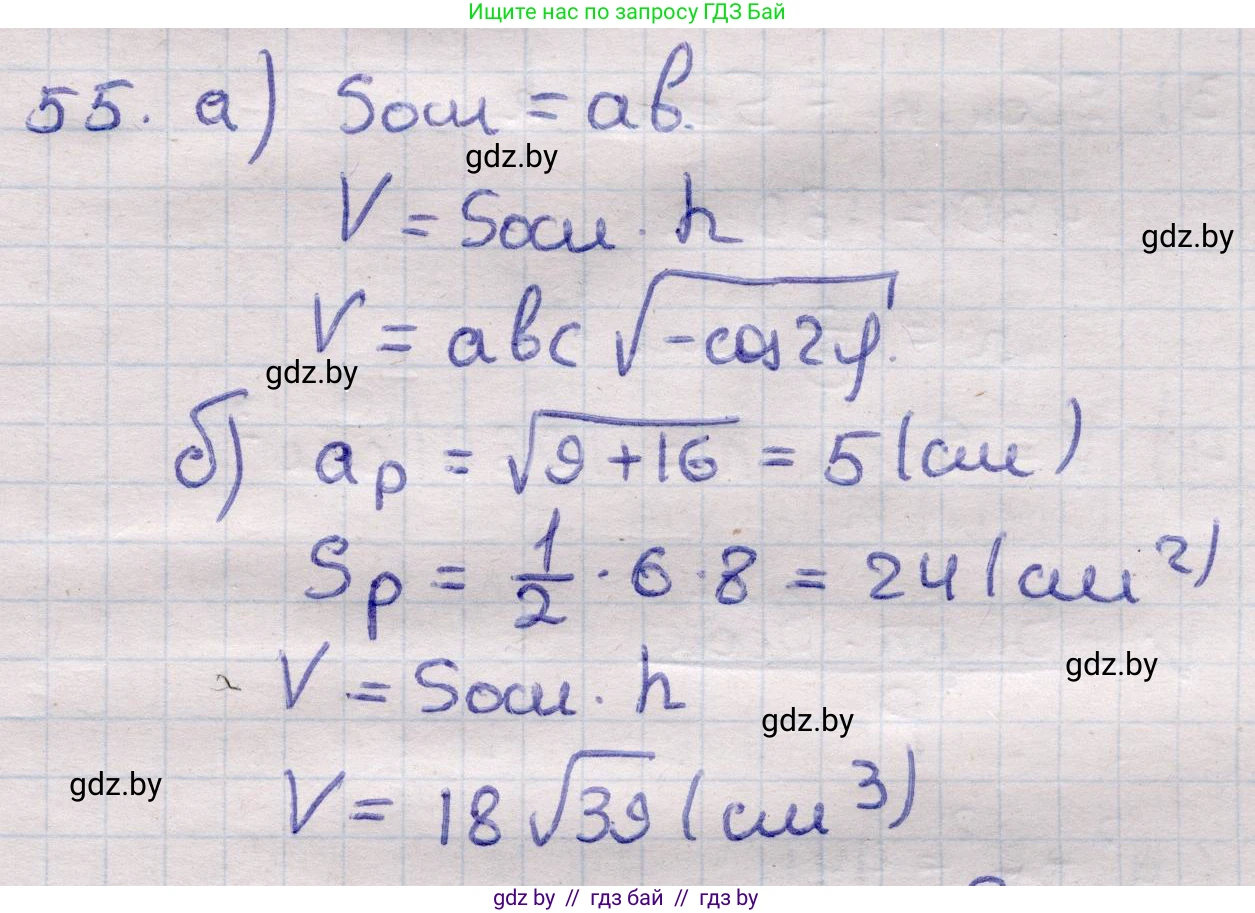 Ищите нас по запросу ГДЗ Бай
55. а) Sосн = ab.
gdz.by
V = Sосн · h
gdz.by
V = abc √(-cos2φ).
gdz.by
б) aр = √(9+16) = 5 (см)
Sр = 1/2 · 6 · 8 = 24 (см²)
gdz.by
V = Sосн · h
gdz.by
gdz.by
V = 18 √39 (см³)
gdz.by // гдз бай // гдз by